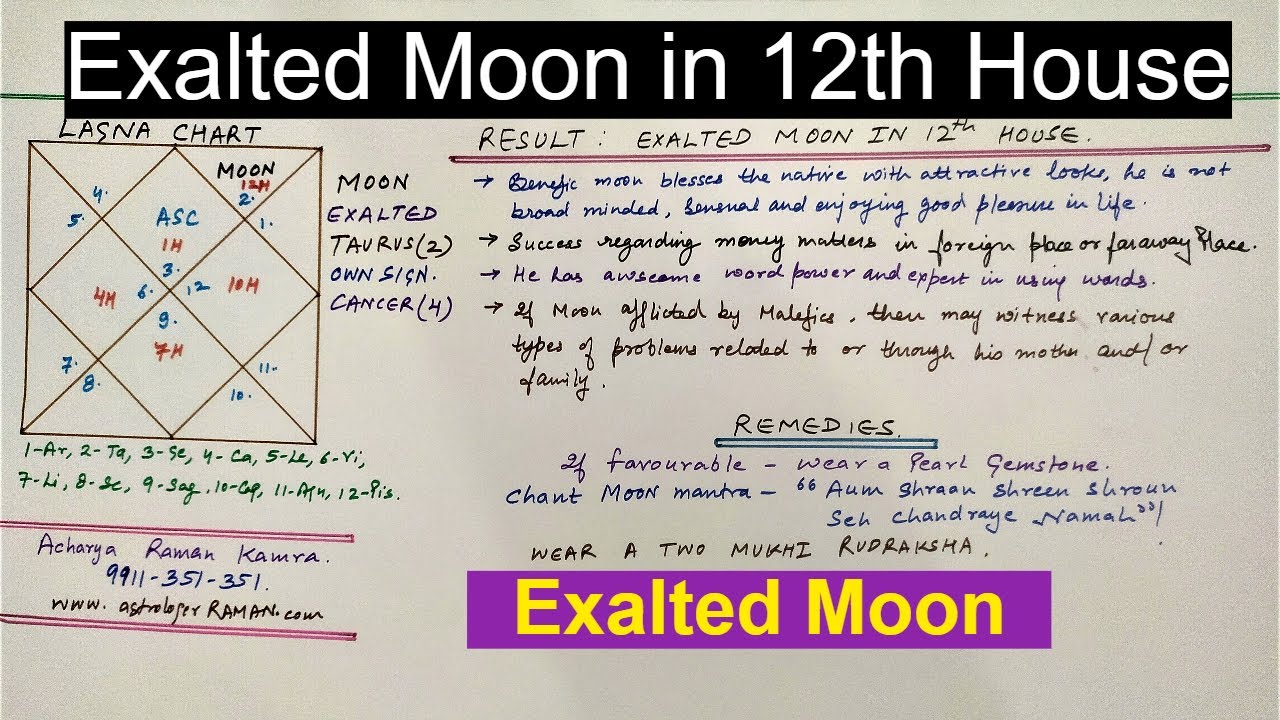 Exalted Moon in 12th House
LAGNA CHART
MOON
12H
4.
2.
5.
ASC
1.
1H
3.
4H
6.
12
10H
9.
7H
7.
11.
8.
10.
MOON
EXALTED
TAURUS(2)
OWN SIGN.
CANCER(4)
1-Ar, 2-Ta, 3-Ge, 4-Ca, 5-Le, 6-Vi,
7-Li, 8-Sc, 9-Sag, 10-Cap, 11-Aqu, 12-Pis.
Acharya Raman Kamra.
9911-351-351.
www.astrologerRAMAN.com
RESULT: EXALTED MOON IN 12th HOUSE.
→ Benefic moon blesses the native with attractive looks, he is not
broad minded, sensual and enjoying good pleasure in life.
→ Success regarding money matters in foreign place or faraway Place.
→ He has awesome word power and expert in using words.
→ If Moon afflicted by Malefics, then may witness various
types of problems related to or through his mother and/or
family.
REMEDIES.
If favourable - wear a Pearl Gemstone.
Chant Moon mantra - "Aum Shraan Shreen Shroun
Seh Chandraye Namah"/
WEAR A TWO MUKHI RUDRAKSHA.
Exalted Moon